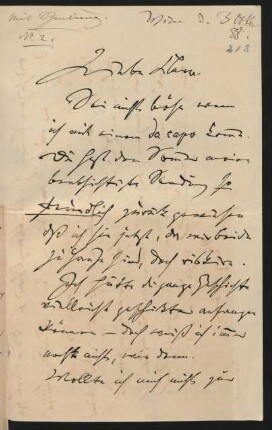 Wien d. 3 Oct
88.
213
Liebe Clara.
Sei nicht böse wenn
ich mit einem da capo komme.
Du hast den Sommer meine
beabsichtigte Sendung so
freundlich zurück gewiesen
daß ich sie jetzt, da wir beide
zu Hause sind, doch riskire.
Ich hätte die ganze Geschichte
vielleicht geschickter anfangen
können – doch weiß ich immer
noch nicht, wie denn.
Wollte ich mich nicht zur